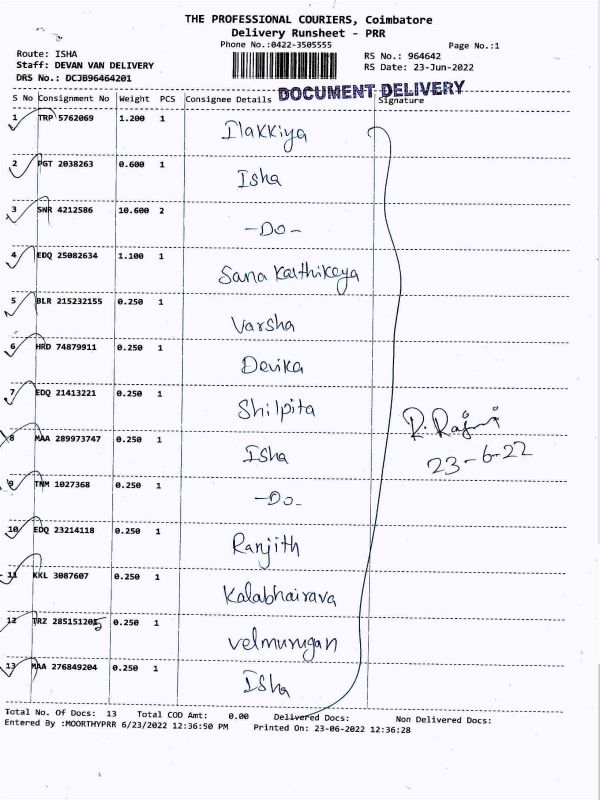 THE PROFESSIONAL COURIERS, Coimbatore
Delivery Runsheet - PRR
Phone No.:0422-3505555 Page No.:1
Route: ISHA RS No.: 964642
Staff: DEVAN VAN DELIVERY RS Date: 23-Jun-2022
DRS No.: DCJB96464201
DOCUMENT DELIVERY
S No Consignment No Weight PCS Consignee Details Signature
1 TRP 5762069 1.200 1 Ilakkiya
2 PGT 2038263 0.600 1 Isha
3 SNR 4212586 10.600 2 -Do-
4 EDQ 25082634 1.100 1 Sana Kaithikeya
5 BLR 215232155 0.250 1 Varsha
6 HRD 74879911 0.250 1 Devika
7 EDQ 21413221 0.250 1 Shilpita
R. Rajni
8 MAA 289973747 0.250 1 Isha
23-6-22
9 TNM 1027368 0.250 1 -Do-
10 EDQ 23214118 0.250 1 Ranjith
11 KKL 3087607 0.250 1 Kalabhairava
12 TRZ 285151205 0.250 1 Velmurugan
13 MAA 276849204 0.250 1 Isha
Total No. Of Docs: 13 Total COD Amt: 0.00 Delivered Docs: Non Delivered Docs:
Entered By :MOORTHYPRR 6/23/2022 12:36:50 PM Printed On: 23-06-2022 12:36:28